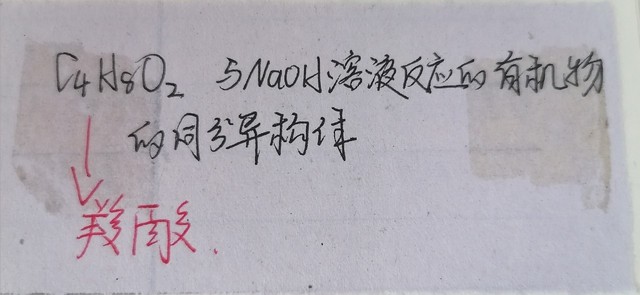 C₄H₈O₂ 与NaOH溶液反应的有机物
的同分异构体
羧酸.